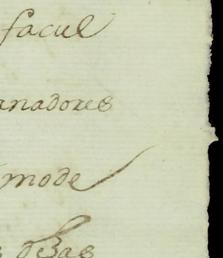 facul
anadores
mode